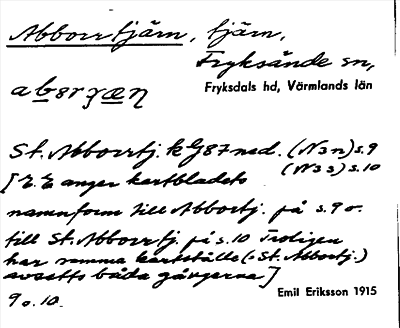 Abborrtjärn, tjärn,
Fryksände sn,
Fryksdals hd, Värmlands län
St. Abborrtj. k G87 ned. (N3n) s.9
(N3s) s.10
[E. E anger kartbladets
namnform till Abbortj. på s.9 o.
till St. Abborrtj. på s.10 Troligen
har samma kartställe (= St. Abbortj.)
avsetts båda gångerna]
9 o. 10.
Emil Eriksson 1915